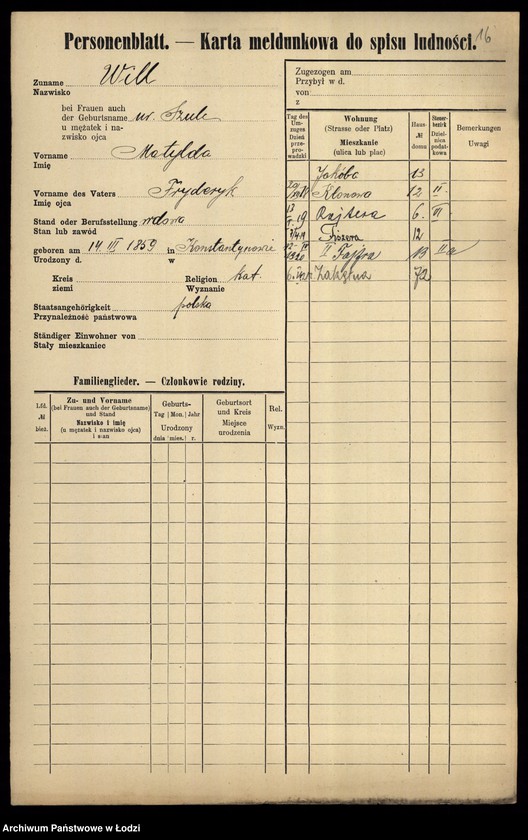 Personenblatt. — Karta meldunkowa do spisu ludności. 16
Zuname Will
Nazwisko
bei Frauen auch
der Geburtsname ur. Szulc
u mężatek i na-
zwisko ojca
Vorname Matylda
Imię
Vorname des Vaters Fryderyk
Imię ojca
Stand oder Berufsstellung wdowa
Stan lub zawód
geboren am 14 III 1859 in Konstantynowie
Urodzony d. w
Kreis Religion kat.
ziemi Wyznanie
Staatsangehörigkeit polska
Przynależność państwowa
Ständiger Einwohner von
Stały mieszkaniec
Zugezogen am
Przybył w d.
von
z
Tag des Um-zuges Dzień prze-prowadzki
Wohnung
(Strasse oder Platz)
Mieszkanie
(ulica lub plac)
Haus-
№
domu
Steuer-
bezirk
Dziel-
nica
podat-
kowa
Bemerkungen
Uwagi
Jakóba 13
Klonowa 12 II
19 Rajtera 6. VI
Fiszera 12
1920 II Fajfra 13 IIa
Zakątna 72
Familienglieder. — Członkowie rodziny.
Lfd.
№
bież.
Zu- und Vorname
(bei Frauen auch der Geburtsname)
und Stand
Nazwisko i imię
(u mężatek i nazwisko ojca)
i stan
Geburts-
Tag Mon. Jahr
Urodzony
dnia mies. r.
Geburtsort
und Kreis
Miejsce
urodzenia
Rel.
Wyzn.
Archiwum Państwowe w Łodzi